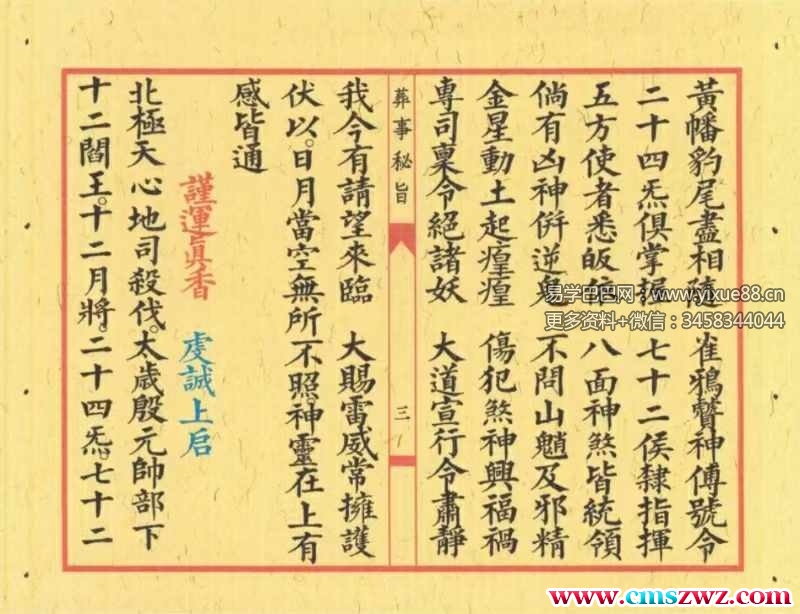 黃幡豹尾盡相隨 雀鴉鷙神傳號令
二十四炁俱掌握 七十二侯隸指揮
五方使者悉皈 八面神煞皆統領
倘有凶神併逆鬼 不問山魈及邪精
金星動土起瘟瘟 傷犯煞神興福禍
專司稟令絕諸妖 大道宣行令肅靜
葬事秘旨
三
我今有請望來臨 大賜雷威常擁護
伏以。日月當空無所不照。神靈在上有
感皆通
謹運眞香 虔誠上启
北極天心地司殺伐。太歲殷元帥部下
十二閻王。十二月將。二十四炁。七十二
易学巴巴网：www.yixue88.cn
更多资料+微信：3458344044
www.cmszwz.com